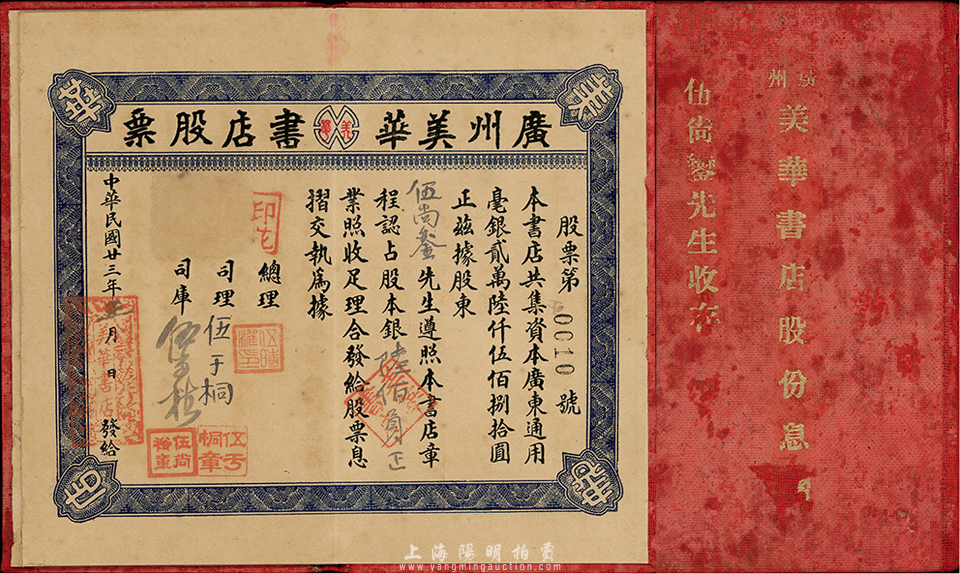 廣州美華書店股票
股票第0010號
本書店共集資本廣東通用
毫銀貳萬陸仟伍佰捌拾圓
正茲據股東
伍尚鎏先生遵照本書店章
程認占股本銀陸佰員正
業照收足理合發給股票息
摺交執爲據
印花
總理
司理 伍于桐
司庫
中華民國廿三年 月 日 發給
美華書店
廣州
美華書店股份息
伍尚鎏先生收存
上海陽明拍賣
www.yangmingauction.com